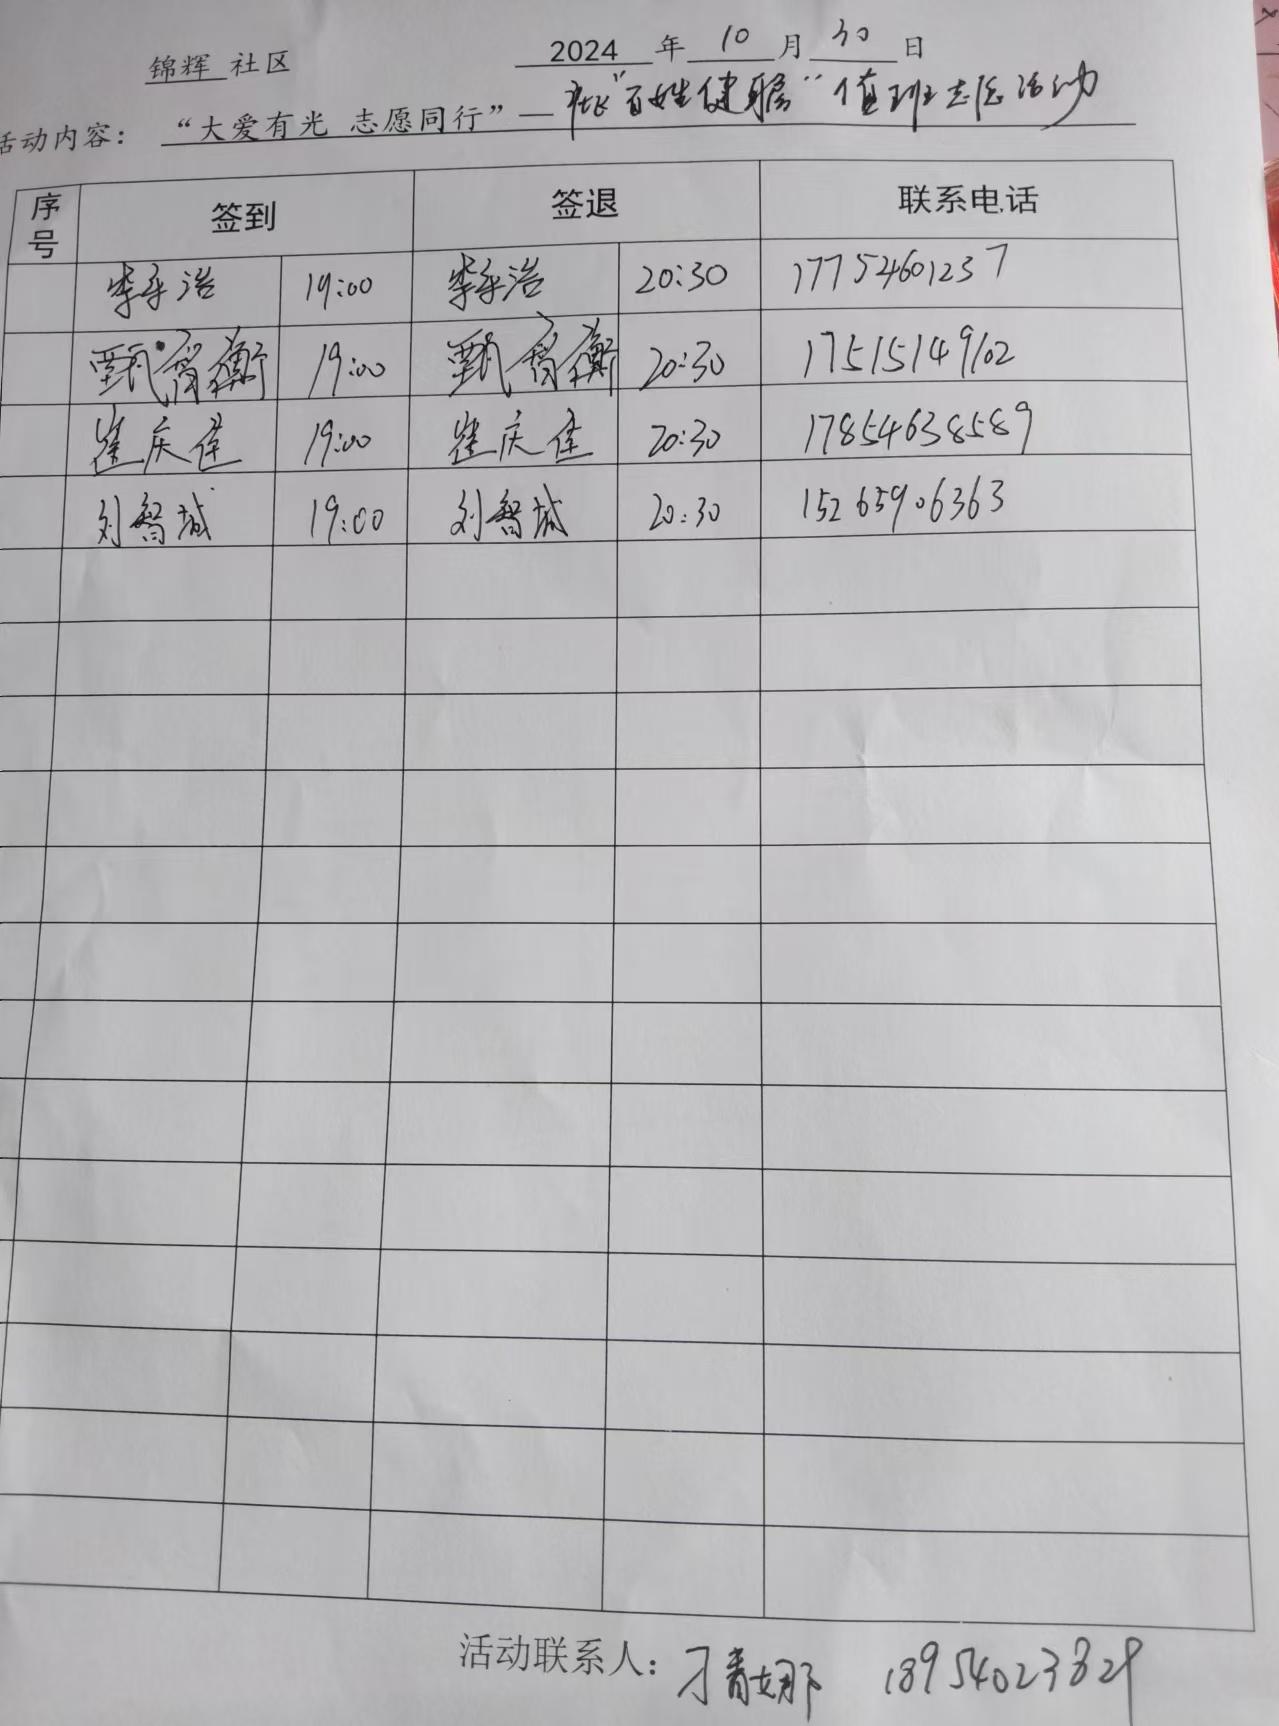 锦辉 社区 2024 年 10 月 30 日
活动内容： “大爱有光 志愿同行”— 社区“百姓健康”值班志愿活动
序号 签到 签退 联系电话
李承浩 19:00 李承浩 20:30 17754601237
甄齐衡 19:00 甄齐衡 20:30 17515149102
崔庆佳 19:00 崔庆佳 20:30 17854638589
刘智城 19:00 刘智城 20:30 15265906363
活动联系人： 刁青娜 18954023829